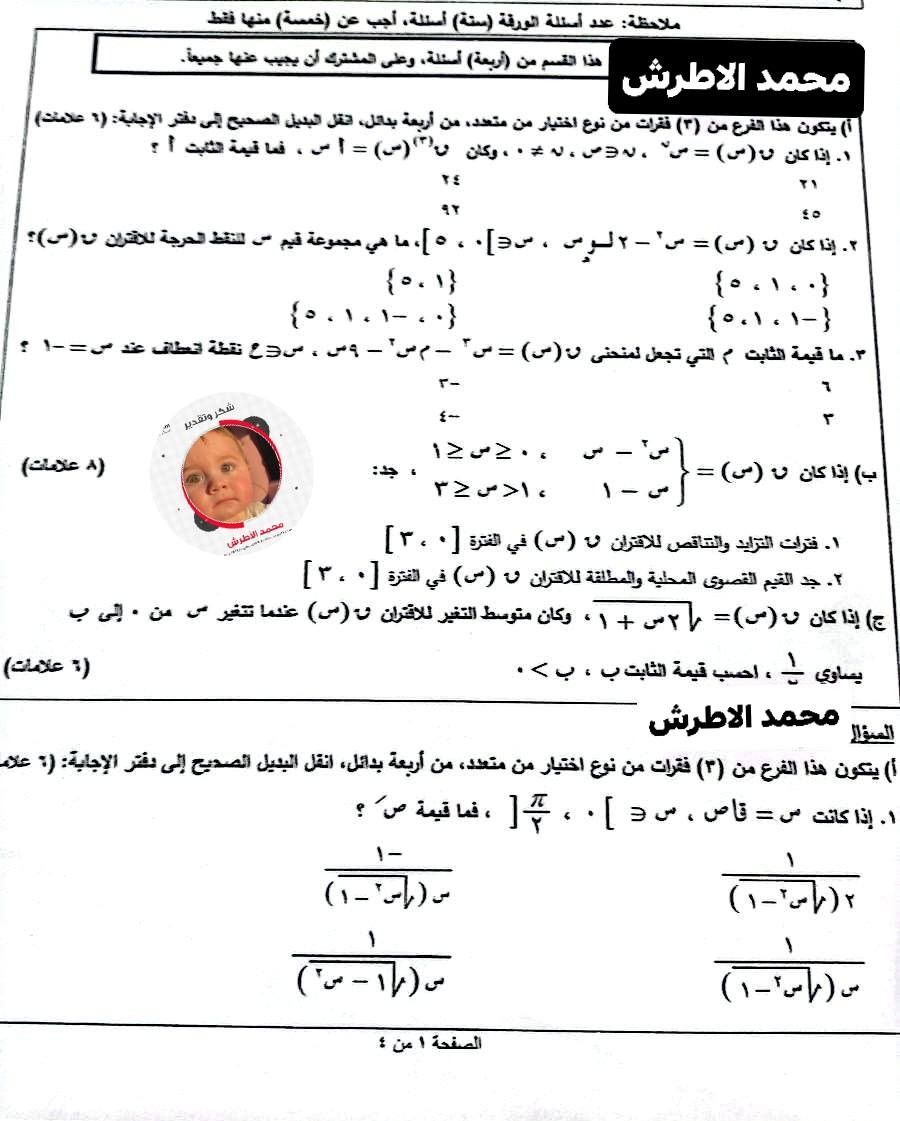 ملاحظة: عدد أسئلة الورقة (ستة) أسئلة، أجب عن (خمسة) منها فقط
هذا القسم من (أربعة) أسئلة، وعلى المشترك أن يجيب عنها جميعاً.
محمد الاطرش
أ) يتكون هذا الفرع من (٣) فقرات من نوع اختيار من متعدد، من أربعة بدائل، انقل البديل الصحيح إلى دفتر الإجابة: (٦ علامات)
١. إذا كان ق(س) = س^ن ، ن∈ص ، ن ≠ ٠ ، وكان ق^(٣)(س) = أ س ، فما قيمة الثابت أ ؟
٢١ ٢٤
٤٥ ٩٢
٢. إذا كان ق (س) = س^٢ – ٢ لــو_هـ س ، س∈]٠ ، ٥]، ما هي مجموعة قيم س للنقط الحرجة للاقتران ق(س)؟
{٠ ، ١ ، ٥} {١ ، ٥}
{–١ ، ١ ، ٥} {٠ ، –١ ، ١ ، ٥}
٣. ما قيمة الثابت م التي تجعل لمنحنى ق(س) = س^٣ – م س^٢ – ٩س ، س∈ح نقطة انعطاف عند س = –١ ؟
٦ –٣
٣ –٤
شكر وتقدير
محمد الأطرش
ب) إذا كان ق (س) = { س^٢ – س ، ٠ ≤ س ≤ ١ ، جد: (٨ علامات)
س – ١ ، ١ < س ≤ ٣
١. فترات التزايد والتناقص للاقتران ق (س) في الفترة [٠ ، ٣]
٢. جد القيم القصوى المحلية والمطلقة للاقتران ق (س) في الفترة [٠ ، ٣]
ج) إذا كان ق(س) = √(٢س + ١) ، وكان متوسط التغير للاقتران ق(س) عندما تتغير س من ٠ إلى ب
يساوي ، احسب قيمة الثابت ب ، ب > ٠ (٦ علامات)
السؤال
محمد الاطرش
أ) يتكون هذا الفرع من (٣) فقرات من نوع اختيار من متعدد، من أربعة بدائل، انقل البديل الصحيح إلى دفتر الإجابة: (٦ علا
١. إذا كانت س = قاص ، س ∈ ]٠ ، π/٢[ ، فما قيمة صَ ؟
١/(٢(√(س^٢–١))) –١/(س(√(س^٢–١)))
١/(س(√(س^٢–١))) ١/(س(√(١ – س^٢)))
الصفحة ١ من ٤